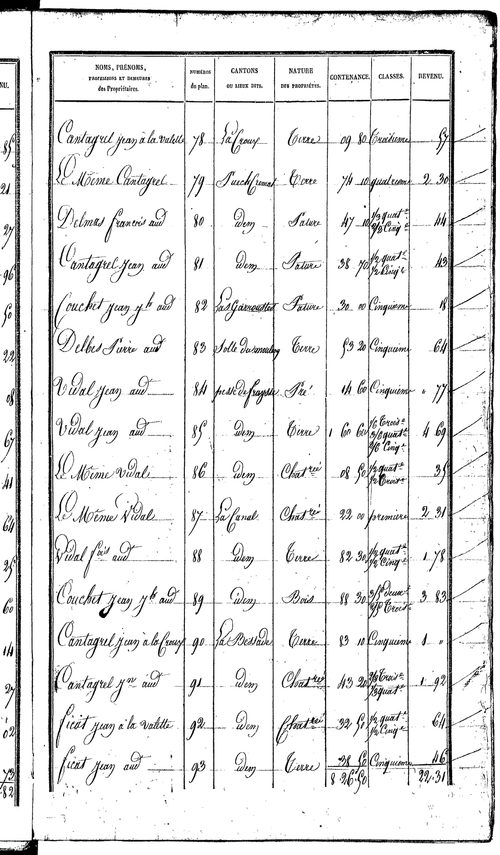 NOMS, PRÉNOMS, PROFESSIONS ET DEMEURES des Propriétaires. NUMÉROS du plan. CANTONS OU LIEUX DITS. NATURE DES PROPRIÉTÉS. CONTENANCE. CLASSES. REVENU.
Cantagrel jean à la valette 78 La Croux Terre 09 80 Troisieme 57
Le Même Cantagrel 79 Puech Terre 74 10 quatrieme 2 30
Delmas francois aud 80 idem Pature 47 10 1/3 quat.e 2/3 Cinq.e 44
Cantagrel jean aud 81 idem Pature 38 70 1/2 quat.e 1/2 Cinq.e 43
Couchet jean j.be aud 82 Las Garroustes Pature 30 00 Cinquieme 18
Delbes Pierre aud 83 Solle du Terre 53 20 Cinquieme 64
Vidal jean aud 84 Pré 14 60 Cinquieme " 77
Vidal jean aud 85 idem Terre 1 60 60 4 69
Le Même Vidal 86 idem Chat.rée 08 50 1/2 quat.e 1/2 Trois.e 35
Le Même Vidal 87 La Canal Chat.rée 22 00 premiere 2 31
Vidal f.ois aud 88 idem Terre 82 30 1/2 quat.e 1/2 Cinq.e 1 78
Couchet jean j.be aud 89 idem Bois 88 30 3/5 deux.e 2/5 Trois.e 3 83
Cantagrel jean à la Croux 90 La Bessade Terre 83 10 Cinquieme 1 "
Cantagrel j.n aud 91 idem Chat.rée 43 20 1 92
ficat jean à la valette 92 idem Chat.rée 32 50 1/2 quat.e 1/2 Cinq.e 64
ficat jean aud 93 idem Terre 38 50 Cinquieme 46
8 26 50 22 31